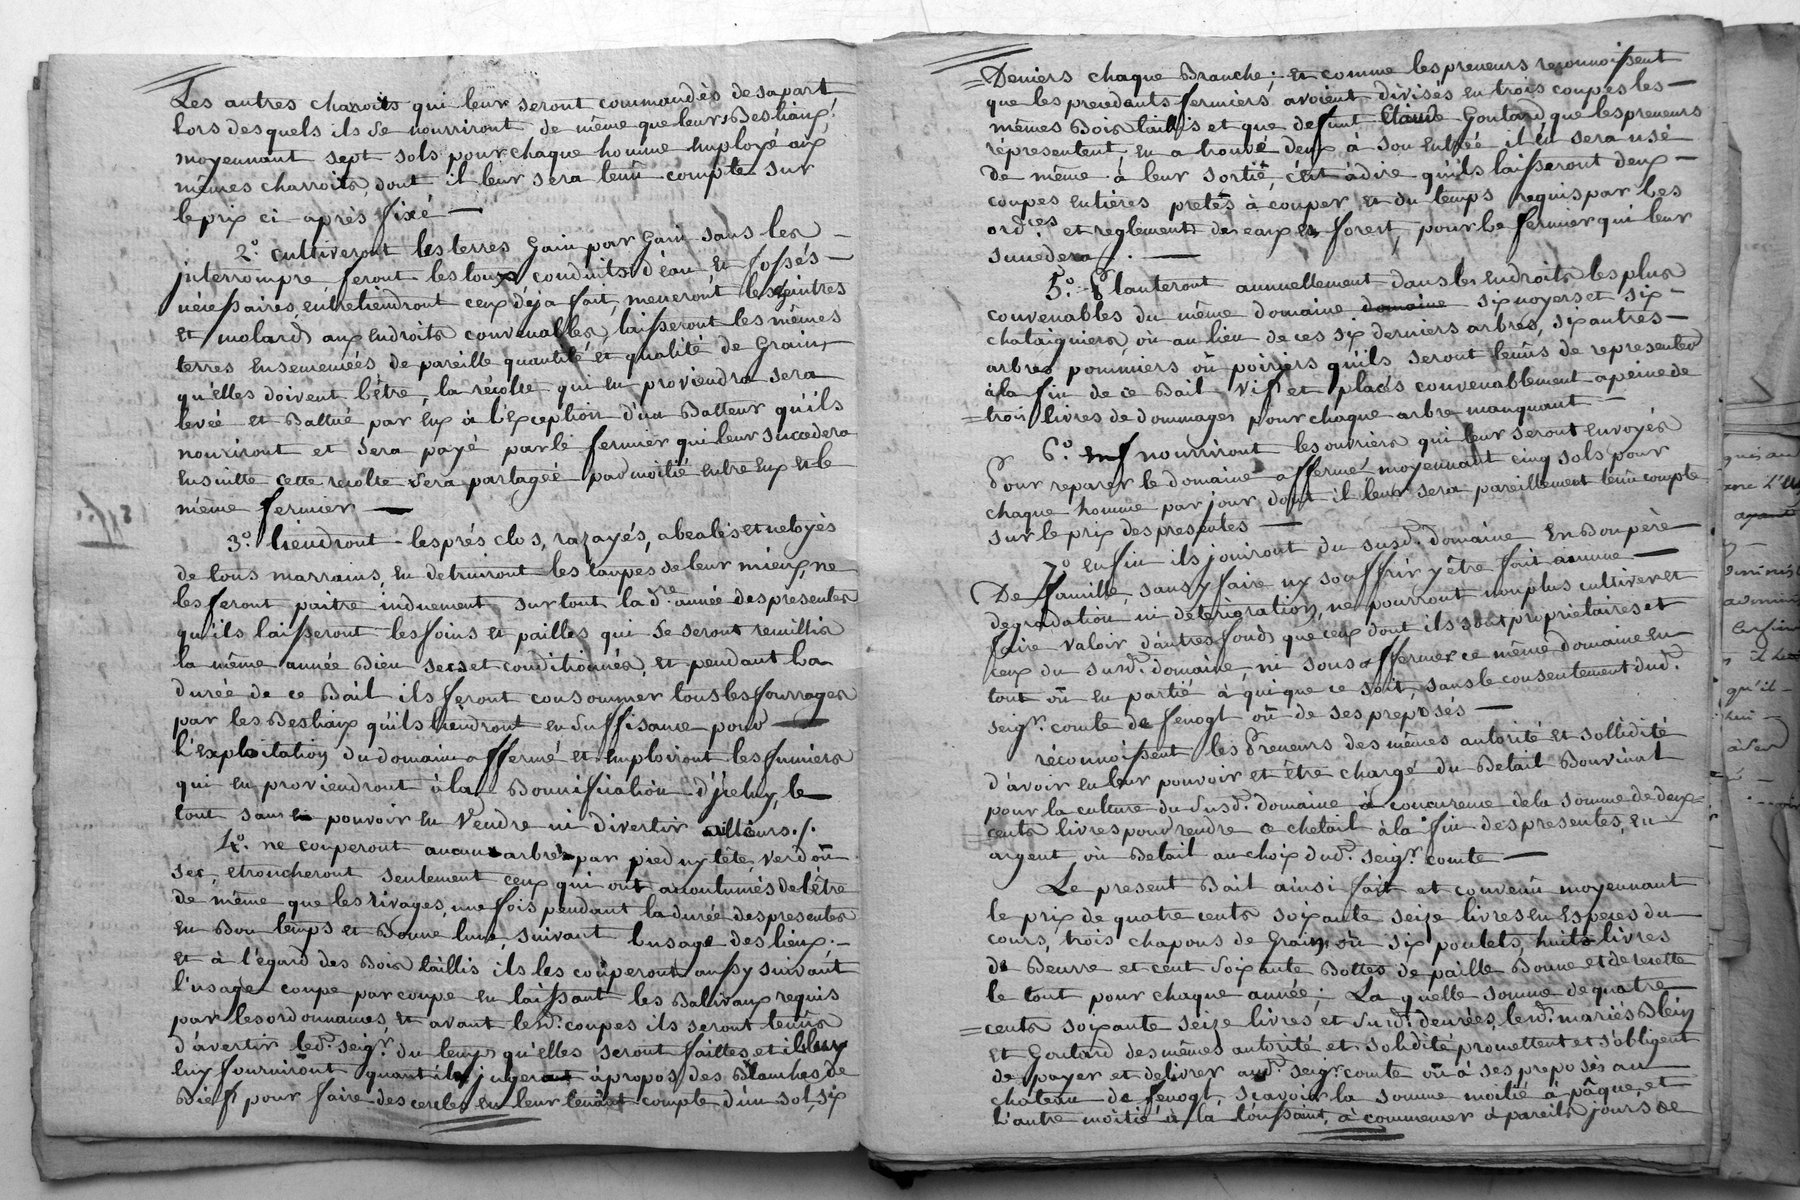 Les autres charroits qui leur seront commandès de sa part
Lors desquels ils se nourriront de même que leurs Bestiaux,
moyennant sept sols pour chaque homme employé aux
mêmes charroits, dont il leur sera tenû compte sur
le prix ci après fixé —
2.° cultiveront les terres Gain par Gain sans les —
jnterrompre, feront les tous conduits d'éau et fossés —
nécessaires, entretiendront ceux déja fait, meneront les cintres
et molard aux endroits convenables, laisseront les mêmes
terres ensemencéés de pareille quantité et qualité de Grains
qu'elles doivent l'être, la récolte qui en proviendra sera
levéé et Battué par eux à l'exception d'un Batteur qu'ils
nouriront et sera payé par le fermier qui leur succedera
ensuitte cette recolte sera partagéé par moitié entre eux et le
même fermier —
3.° tiendront les prés clos, razayés, abealés et netoyés
de tous marrains, en detruiront les taupes de leur mieux, ne
les feront paitre induement surtout la d.re année des presentes
qu'ils laisseront les foins et pailles qui se seront recuillis
la même année Bien secs et conditionnés, et pendant la
duréé de ce Bail ils feront consommer tous les fourrages
par les Bestiaux qu'ils tiendront en suffisance pour —
l'exploitation du domaine affermé et emploiront les fumiers
qui en proviendront à la Bonnification d'jceluy, le
tout sans en pouvoir en vendre ni divertir ailleurs ./.
4.° ne couperont aucuns arbres par pied ny tête, verd oû
sec, etroncheront seulement ceux qui ont accoutumés de l'être
de même que les rivages, une fois pendant la durée des presentes
en Bon temps et Bonne lune, suivant l'usage des lieux. —
et à l'égard des Bois taillis ils les coûperont aussy suivant
l'usage coupe par coupe en laissant les Balivaux requis
par les ordonnances, et avant lesd. coupes ils seront tenûs
d'avertir led. seig.r du temps qu'elles seront faittes et il
eux fourniront quant ils jugeront àpropos des Blanches de
Bief pour faire des cercles en leur tenant compte d'un sol, six
= Deniers chaque Branche; et comme les preneurs reconnoissent
que les precedants fermiers avoient divisés en trois coupes les —
mêmes Bois taillis et que defunt Claude Goutard, que les preneurs
répresentent, en a trouvé deux à son entréé il en sera usé
de même à leur sortié, c'est àdire qu'ils laisseront deux —
coupes entières pretès à couper et du temps requis par les
ord.ces et reglements des eaux et forest, pour le fermier qui leur
succedera ./. —
5.° Planteront annuellement dans les endroits les plus
convenables du même domaine domaine six noyers et six —
chataigniers, où au lieu de ces six derniers arbres, six autres —
arbres pommiers oû poiriers qu'ils seront tenûs de representer
à la fin de ce Bail vifs et placés convenablement a peine de
= trois livres de dommages pour chaque arbre manquant —
6.° nourriront les ouvriers qui leur seront envoyés
Pour reparer le domaine affermé, moyennant cinq sols pour
chaque homme par jour, dont il leur sera pareillement tenû compte
sur le prix des presentes —
7.° enfin ils jouiront du susd. domaine en Bon père
De famille, sans y faire ny souffrir y être fait aucune —
degradation ni déterioration, ne pourront non plus cultiver et
faire valoir d'autres fonds que ceux dont ils sont propriétaires et
ceux du susd. domaine, ni sous affermer ce même domaine en
tout oû en partié à qui que ce soit, sans le consentement dud.
seig.r comte de fenogl oû de ses preposés —
réconnoissent les Preneurs des mêmes autorité et sollidité
d'avoir en leur pouvoir et être chargé du Betail Bouvinat
pour la culture du susd. domaine à concurence de la somme de deux =
cents livres pour rendre ce chetail à la fin des presentes, en
argent où Betail au choix dud. seig.r comte —
Le present Bail ainsi fait et convenû moyennant
le prix de quatre cents soixante seize livres en especes du
cours, trois chapons de Grain, où six poulets, huits livres
de Beurre et cent soixante Bottes de paille Bonne et de recette
le tout pour chaque année; La quelle somme de quatre
= cents soixante seize livres et susd. denrées, lesd. mariés Blein
et Goutard des mêmes autorité et solidité promettent et s'obligent
de payer et delivrer aud. seig.r comte oû à ses preposés au
château de fenogl, sçavoir la somme moitié à pâque, et
L'autre moitié à la toussaint, à commencer à pareils jours de